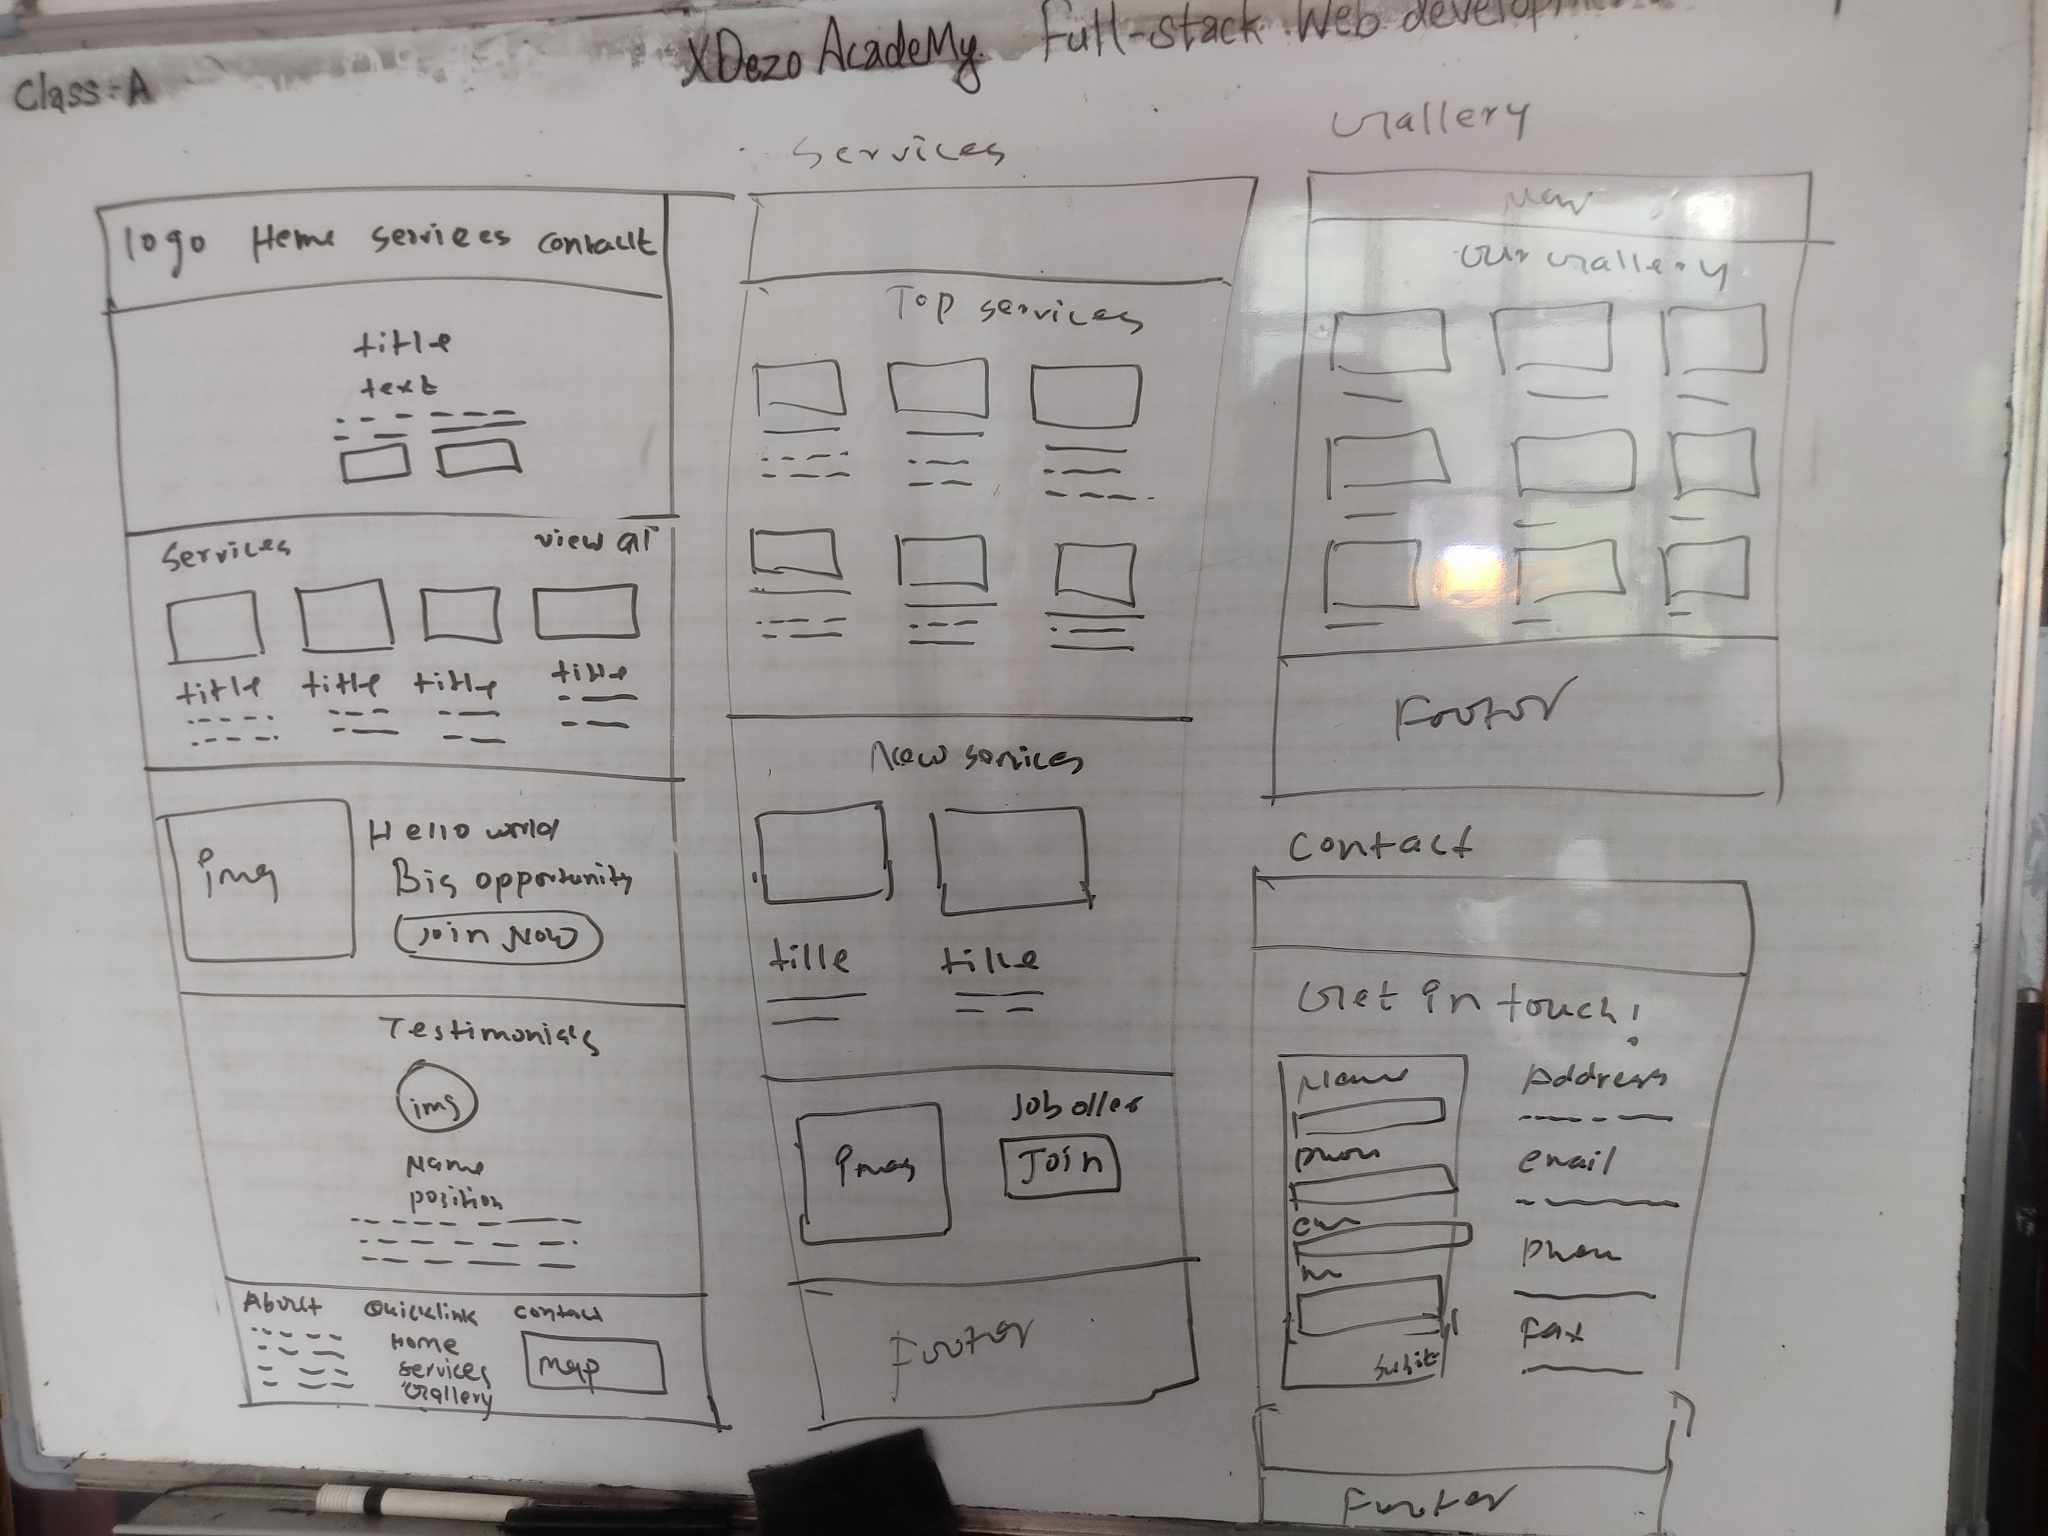 Class-A
XDezo AcadeMy. Full-stack Web develop
logo Home services contact
title
text
services view all
title title title title
img
Hello world
Big opportunity
Join Now
Testimonials
img
Name
position
About Quicklink contact
Home
services
Gallery
map
services
Top services
New services
title title
Job offer
Join
Footer
Gallery
Nav
Our Gallery
Footer
contact
Get in touch!
Name
phon
em
m
Address
email
phon
Fax
Footer